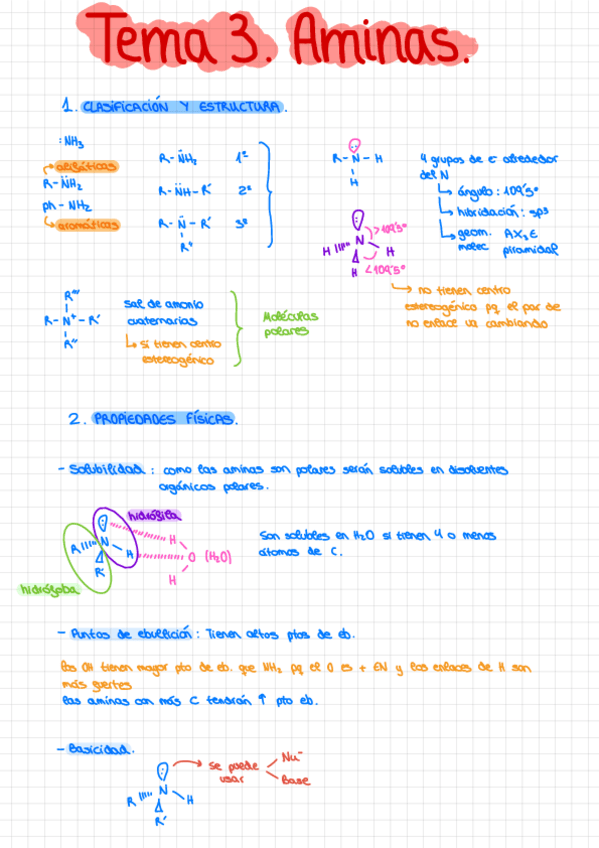 Tema 3. Aminas.
1. CLASIFICACIÓN Y ESTRUCTURA.
:NH₃
alifáticas
R-N̈H₂
ph-NH₂
aromáticas
R-N̈H₂ 1º
R-N̈H-R' 2º
R-N̈-R' 3º
R''
R-N-H
H
4 grupos de e⁻ alrededor
del N
ángulo: 109'5º
hibridación: sp3
geom. AX₃E
molec piramidal
>109'5º
N
H
H
H
<109'5º
no tienen centro
estereogénico pq el par de
no enlace va cambiando
R'''
R-N⁺-R'
R''
sal de amonio
cuaternarias
sí tienen centro
estereogénico
Moléculas
polares
2. PROPIEDADES FÍSICAS.
- Solubilidad: como las aminas son polares serán solubles en disolventes
orgánicos polares.
hidrófila
R
N
H
R'
hidrófoba
H
O (H₂O)
H
Son solubles en H₂O si tienen 4 o menos
átomos de C.
- Puntos de ebullición: Tienen altos ptos de eb.
Los OH tienen mayor pto de eb. que NH₂ pq el O es + EN y los enlaces de H son
más fuertes
Las aminas con más C tendrán ↑ pto eb.
- Basicidad.
R
N
H
R'
se puede
usar
Nu⁻
Base